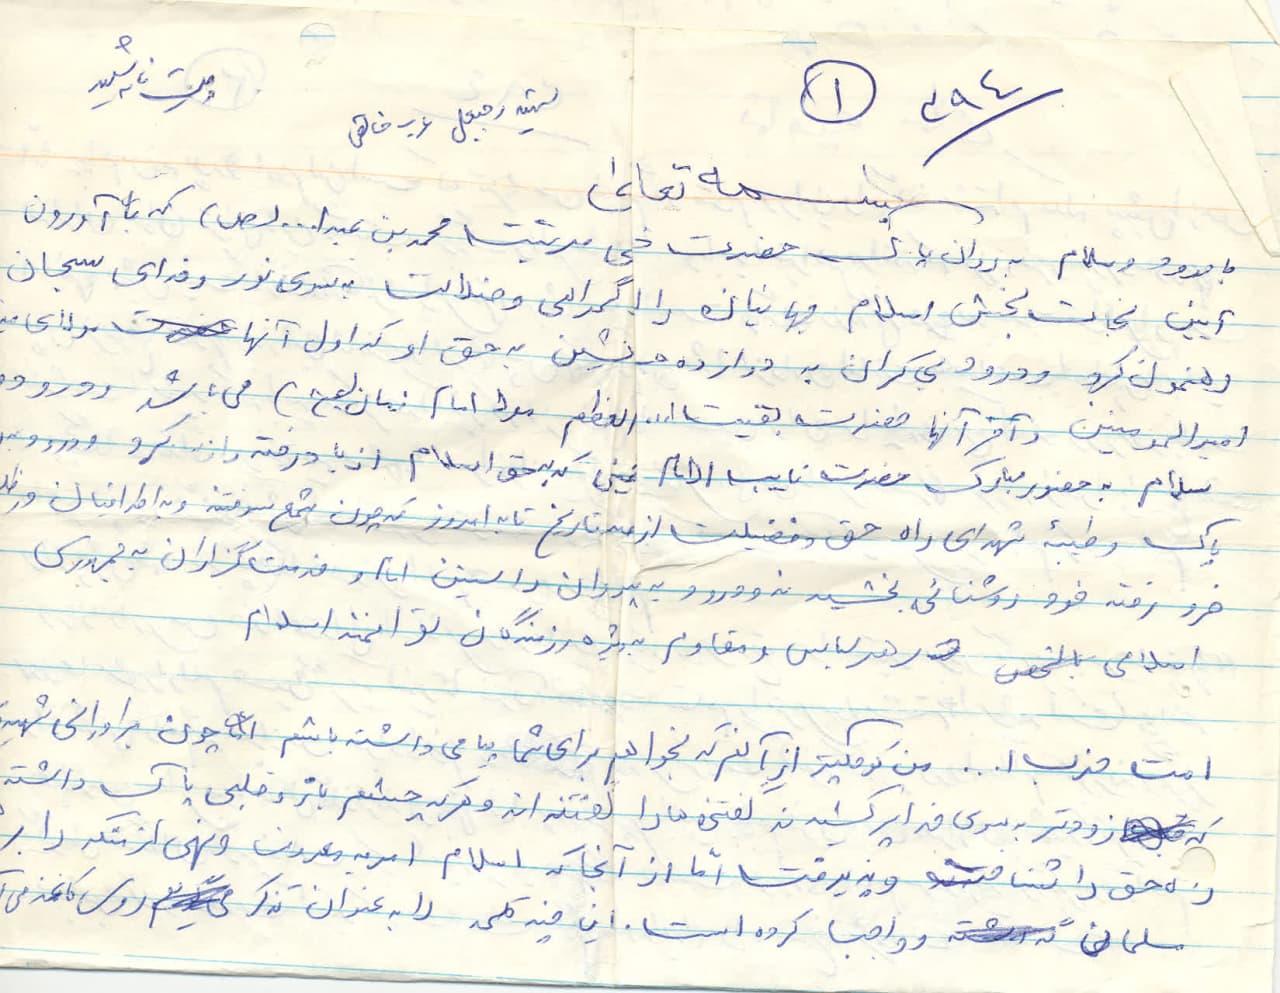 ۲۹۴
۱
وصیت نامه شهید
بسمه تعالی
با درود و سلام به روان پاک حضرت ختمی مرتبت محمد بن عبدا... (ص) که با آوردن
آیین نجات بخش اسلام جهانیان را از گمراهی و ضلالت به سوی نور و خدای سبحان
رهنمون کرد و درود بی کران به دوازده جانشین به حق او که اول آنها حضرت مولای
امیرالمومنین و آخر آنها حضرت بقیت ا... العظم مولا امام زمان (عج) می باشد و درود و
سلام به حضور مبارک حضرت نایب الامام خمینی که به حق اسلام از یاد رفته را زنده کرد و درود به
پاک و طیبهٔ شهدای راه حق و فضیلت از صدر تاریخ تا به امروز که چون شمع سوختند و به اطرافیان
خود روشنائی بخشیدند و درود به پیروان راستین امام و خدمت گزاران به جمهوری
اسلامی بالخص در هر لباس و مقام به ویژه رزمندگان توانمند اسلام
امت حزب ا... من کوچکتر از آنم که بخواهم برای شما پیامی داشته باشم اما چون برادرانی
که زودتر به سوی خدا پر کشیدند گفتنی ها را گفته اند و هر که چشم باز و قلبی پاک داشته
راه حق را شناخته و پذیرفت اما از آنجا که اسلام امر به معروف و نهی از منکر را بر
مسلمان واجب کرده است. این چند کلمه را به عنوان تذکر روی کاغذ می